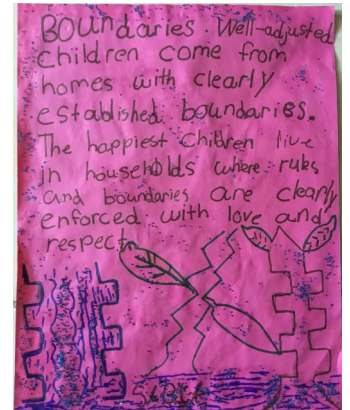 BOUNdaries. Well-adjusted
children come from
homes with clearly
established boundaries.
The happiest children live
in households where rules
and boundaries are clearly
enforced with love and
respect